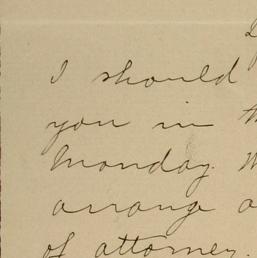 I should
you in
Monday.
arrange
of attorney.